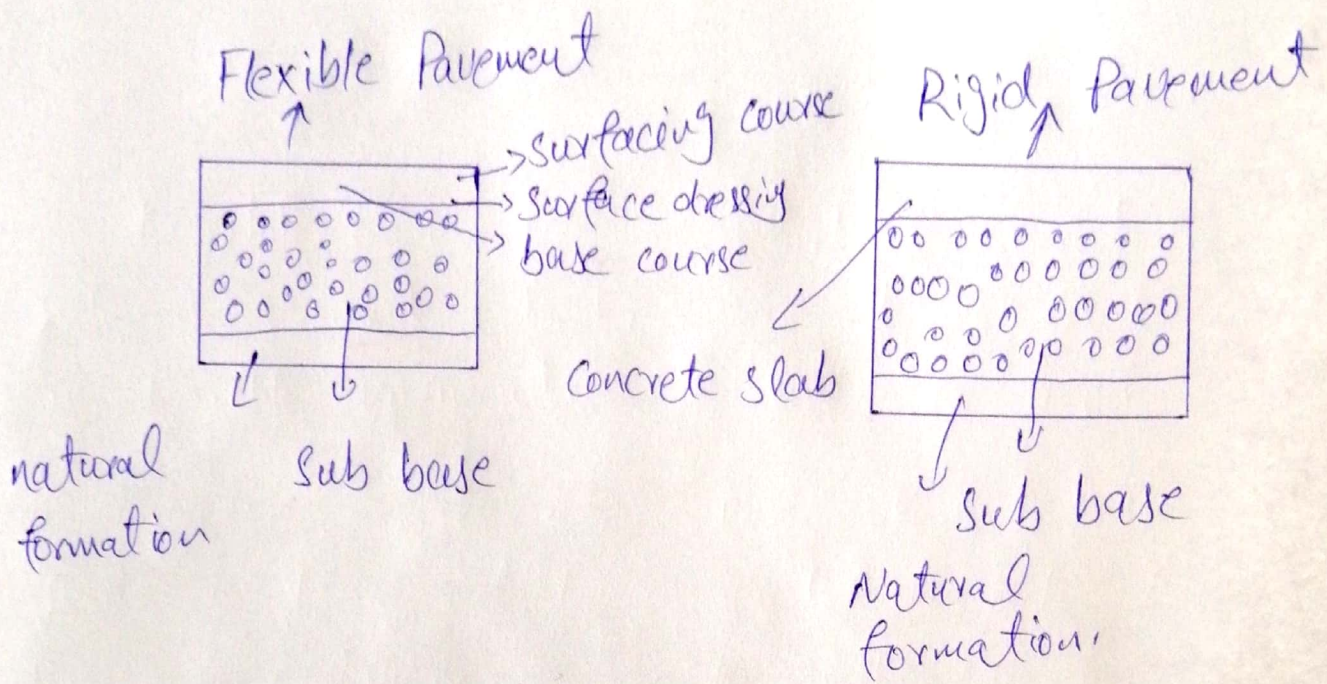 Flexible Pavement
surfacing course
Surface dressing
base course
natural
formation
Sub base
Rigid Pavement
Concrete slab
Sub base
Natural
formation.